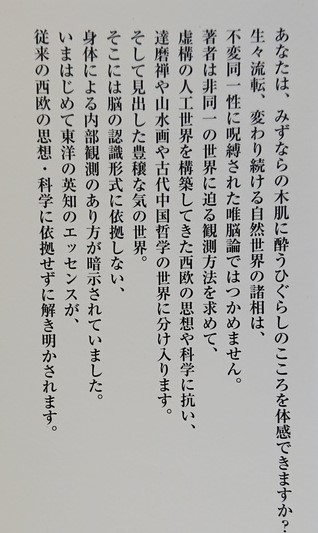 あなたは、みずならの木肌に酔うひぐらしのこころを体感できますか?
生々流転、変わり続ける自然世界の諸相は、
不変同一性に呪縛された唯脳論ではつかめません。
著者は非同一の世界に迫る観測方法を求めて、
虚構の人工世界を構築してきた西欧の思想や科学に抗い、
達磨禅や山水画や古代中国哲学の世界に分け入ります。
そして見出した豊穣な気の世界。
そこには脳の認識形式に依拠しない、
身体による内部観測のあり方が暗示されていました。
いまはじめて東洋の英知のエッセンスが、
従来の西欧の思想・科学に依拠せずに解き明かされます。